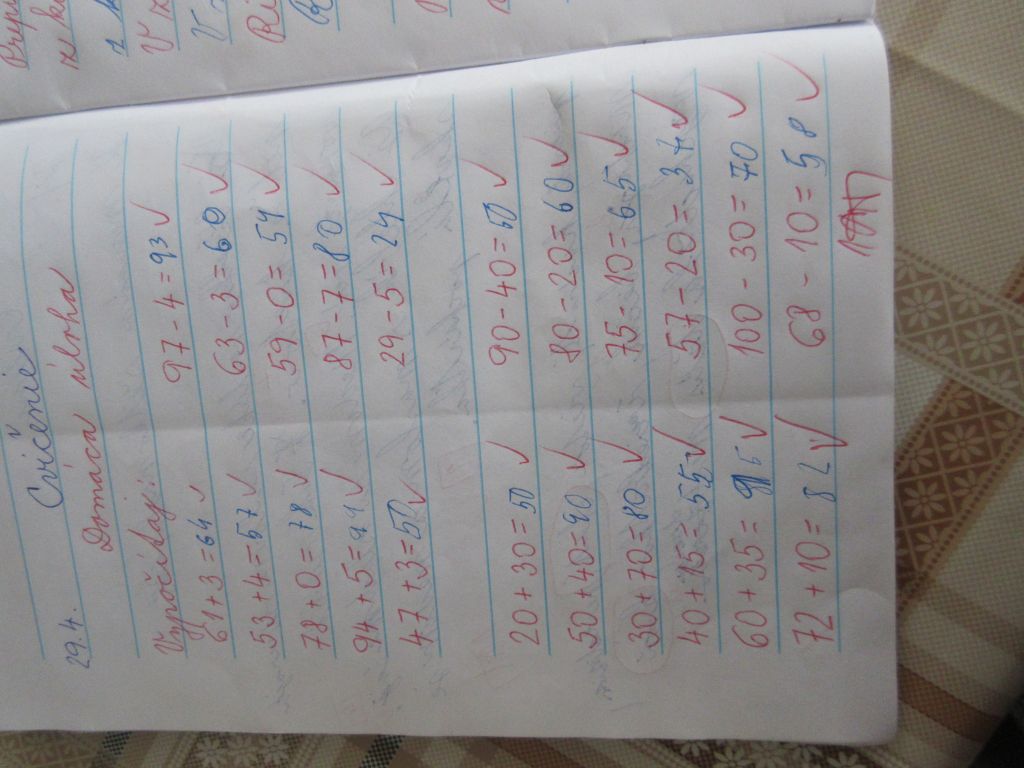 Cvičenie
29.4.
Domáca úloha
Vypočítaj: 97 - 4 = 93 ✓
61 + 3 = 64 ✓ 63 - 3 = 60 ✓
53 + 4 = 57 ✓ 59 - 0 = 59 ✓
78 + 0 = 78 ✓ 87 - 7 = 80 ✓
94 + 5 = 99 ✓ 29 - 5 = 24 ✓
47 + 3 = 50 ✓
20 + 30 = 50 ✓ 90 - 40 = 50 ✓
50 + 40 = 90 ✓ 80 - 20 = 60 ✓
30 + 70 = 80 ✓ 75 - 10 = 65 ✓
40 + 15 = 55 ✓ 57 - 20 = 37 ✓
60 + 35 = 95 ✓ 100 - 30 = 70 ✓
72 + 10 = 82 ✓ 68 - 10 = 58 ✓